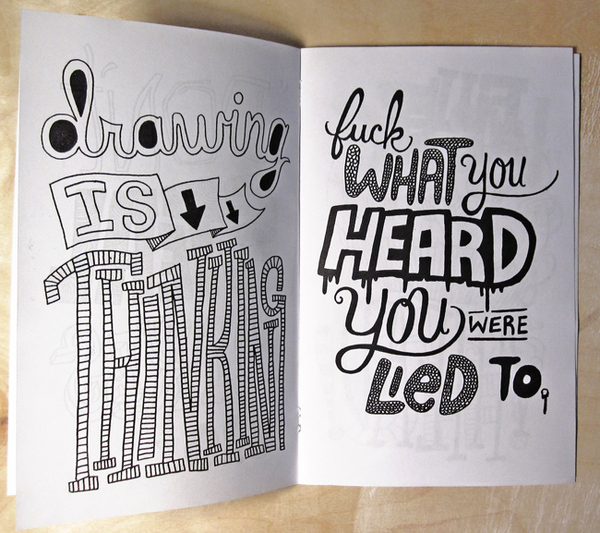 drawing
IS
THINKING
fuck
WHAT you
HEARD
you WERE
LIED TO.